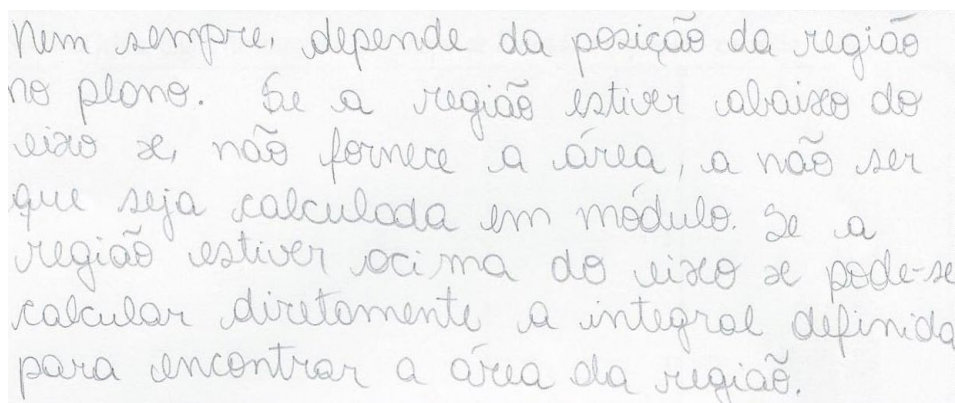 Nem sempre, depende da posição da região
no plano. Se a região estiver abaixo do
eixo x, não fornece a área, a não ser
que seja calculada em módulo. Se a
região estiver acima do eixo x pode-se
calcular diretamente a integral definida
para encontrar a área da região.